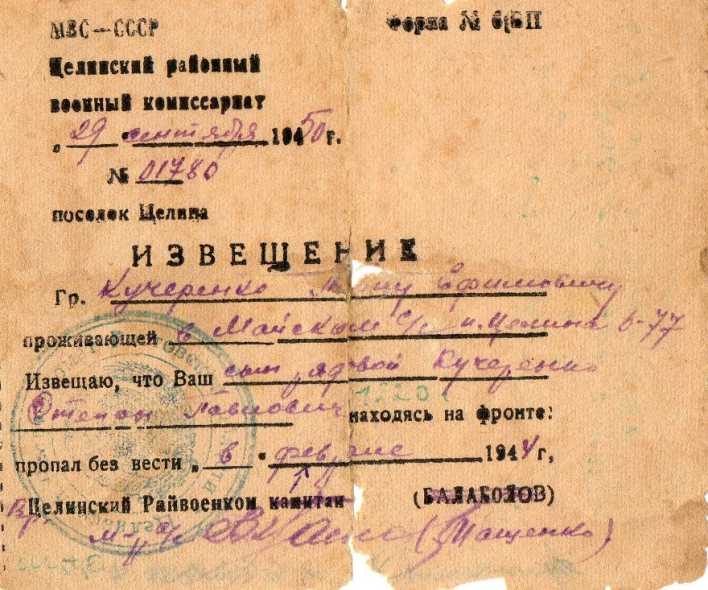 МВС—СССР
Форма № 6/БП
Целинский районный
военный комиссариат
„ 29 " сентября 1950 г.
№ 01780
поселок Целина
ИЗВЕЩЕНИЕ
Гр. Кучеренко Ефимовичу
проживающей в Майском с/с п. Целина 6-77
Извещаю, что Ваш сын рядовой Кучеренко
Степан Павлович находясь на фронте:
пропал без вести „ в " феврале 1944 г,
Вр. Целинский Райвоенком капитан (БАЛАБОЛОВ)
м-р (Тащенко)